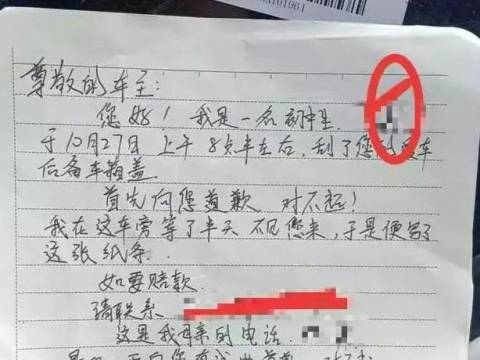 A101961
尊敬的车主:
您好!我是一名初中生,
于10月27日上午8点半左右,刮了您的爱车
后备车箱盖
首先向您道歉 对不起!
我在这车旁等了半天 不见您来,于是便写了
这张纸条
如要赔款
请联系
这是我母亲的电话